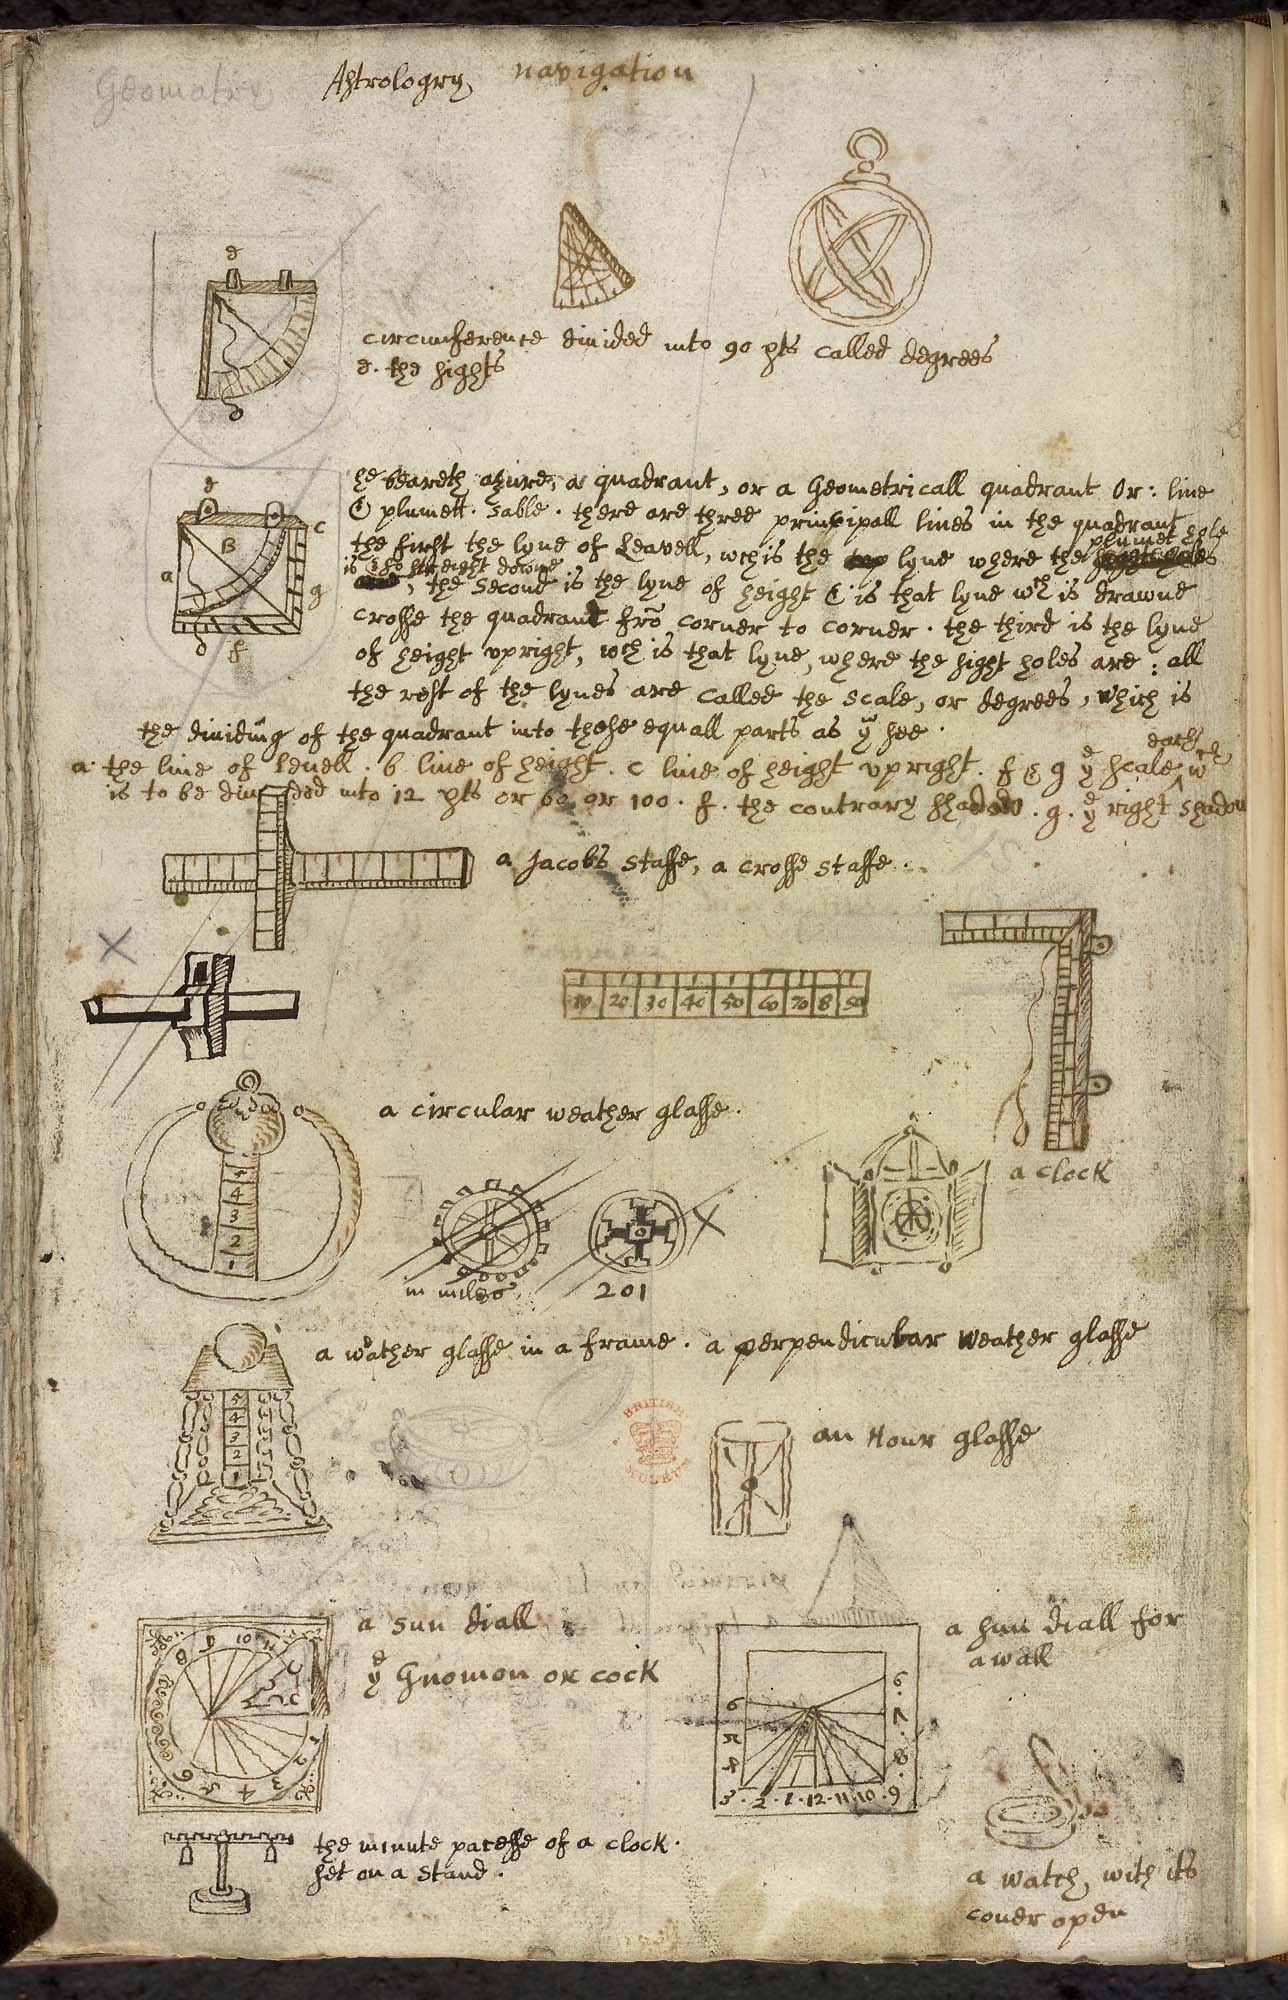 Geomatry Astrologry navigation
e
circumference divided into 90 pts called degrees
e. the hights
D
he beareth azure, a quadrant, or a Geometricall quadrant Or: line
& plumett. Sable. there are three principall lines in the quadrant
the first the lyne of Leavell, wch is the lyne where the plumet hole
is & so streight downe, the second is the lyne of height & is that lyne wch is drawne
crosse the quadrant frō corner to corner. the third is the lyne
of height vpright, wch is that lyne, where the sight holes are: all
the rest of the lynes are called the scale, or degrees, which is
the dividing of the quadrant into those equall parts as yu see.
e
B
c
a
g
D
f
a. the line of levell. b line of height. c line of height vpright. f & g ye scale each wch
is to be divided into 12 pts or 60 or 100. f. the contrary shadow. g. ye right shadow
a Jacobs staffe, a crosse staffe.
10 20 30 40 50 60 70 8 90
a circular weather glasse.
5
4
3
2
1
a clock
in miles
201
a weather glasse in a frame. a perpendicular weather glasse
5
4
3
2
1
BRITISH
MUSEUM
an Hour glasse
a sun diall
ye Gnomon or cock
8 9 10 11
1
2
3
4
5
6
a sun diall for
a wall
6 6
5 7
4 8
3 . 2 . 1 . 12 . 11 . 10 . 9
the minute pacesse of a clock.
set on a stand.
a watch, with its
cover open